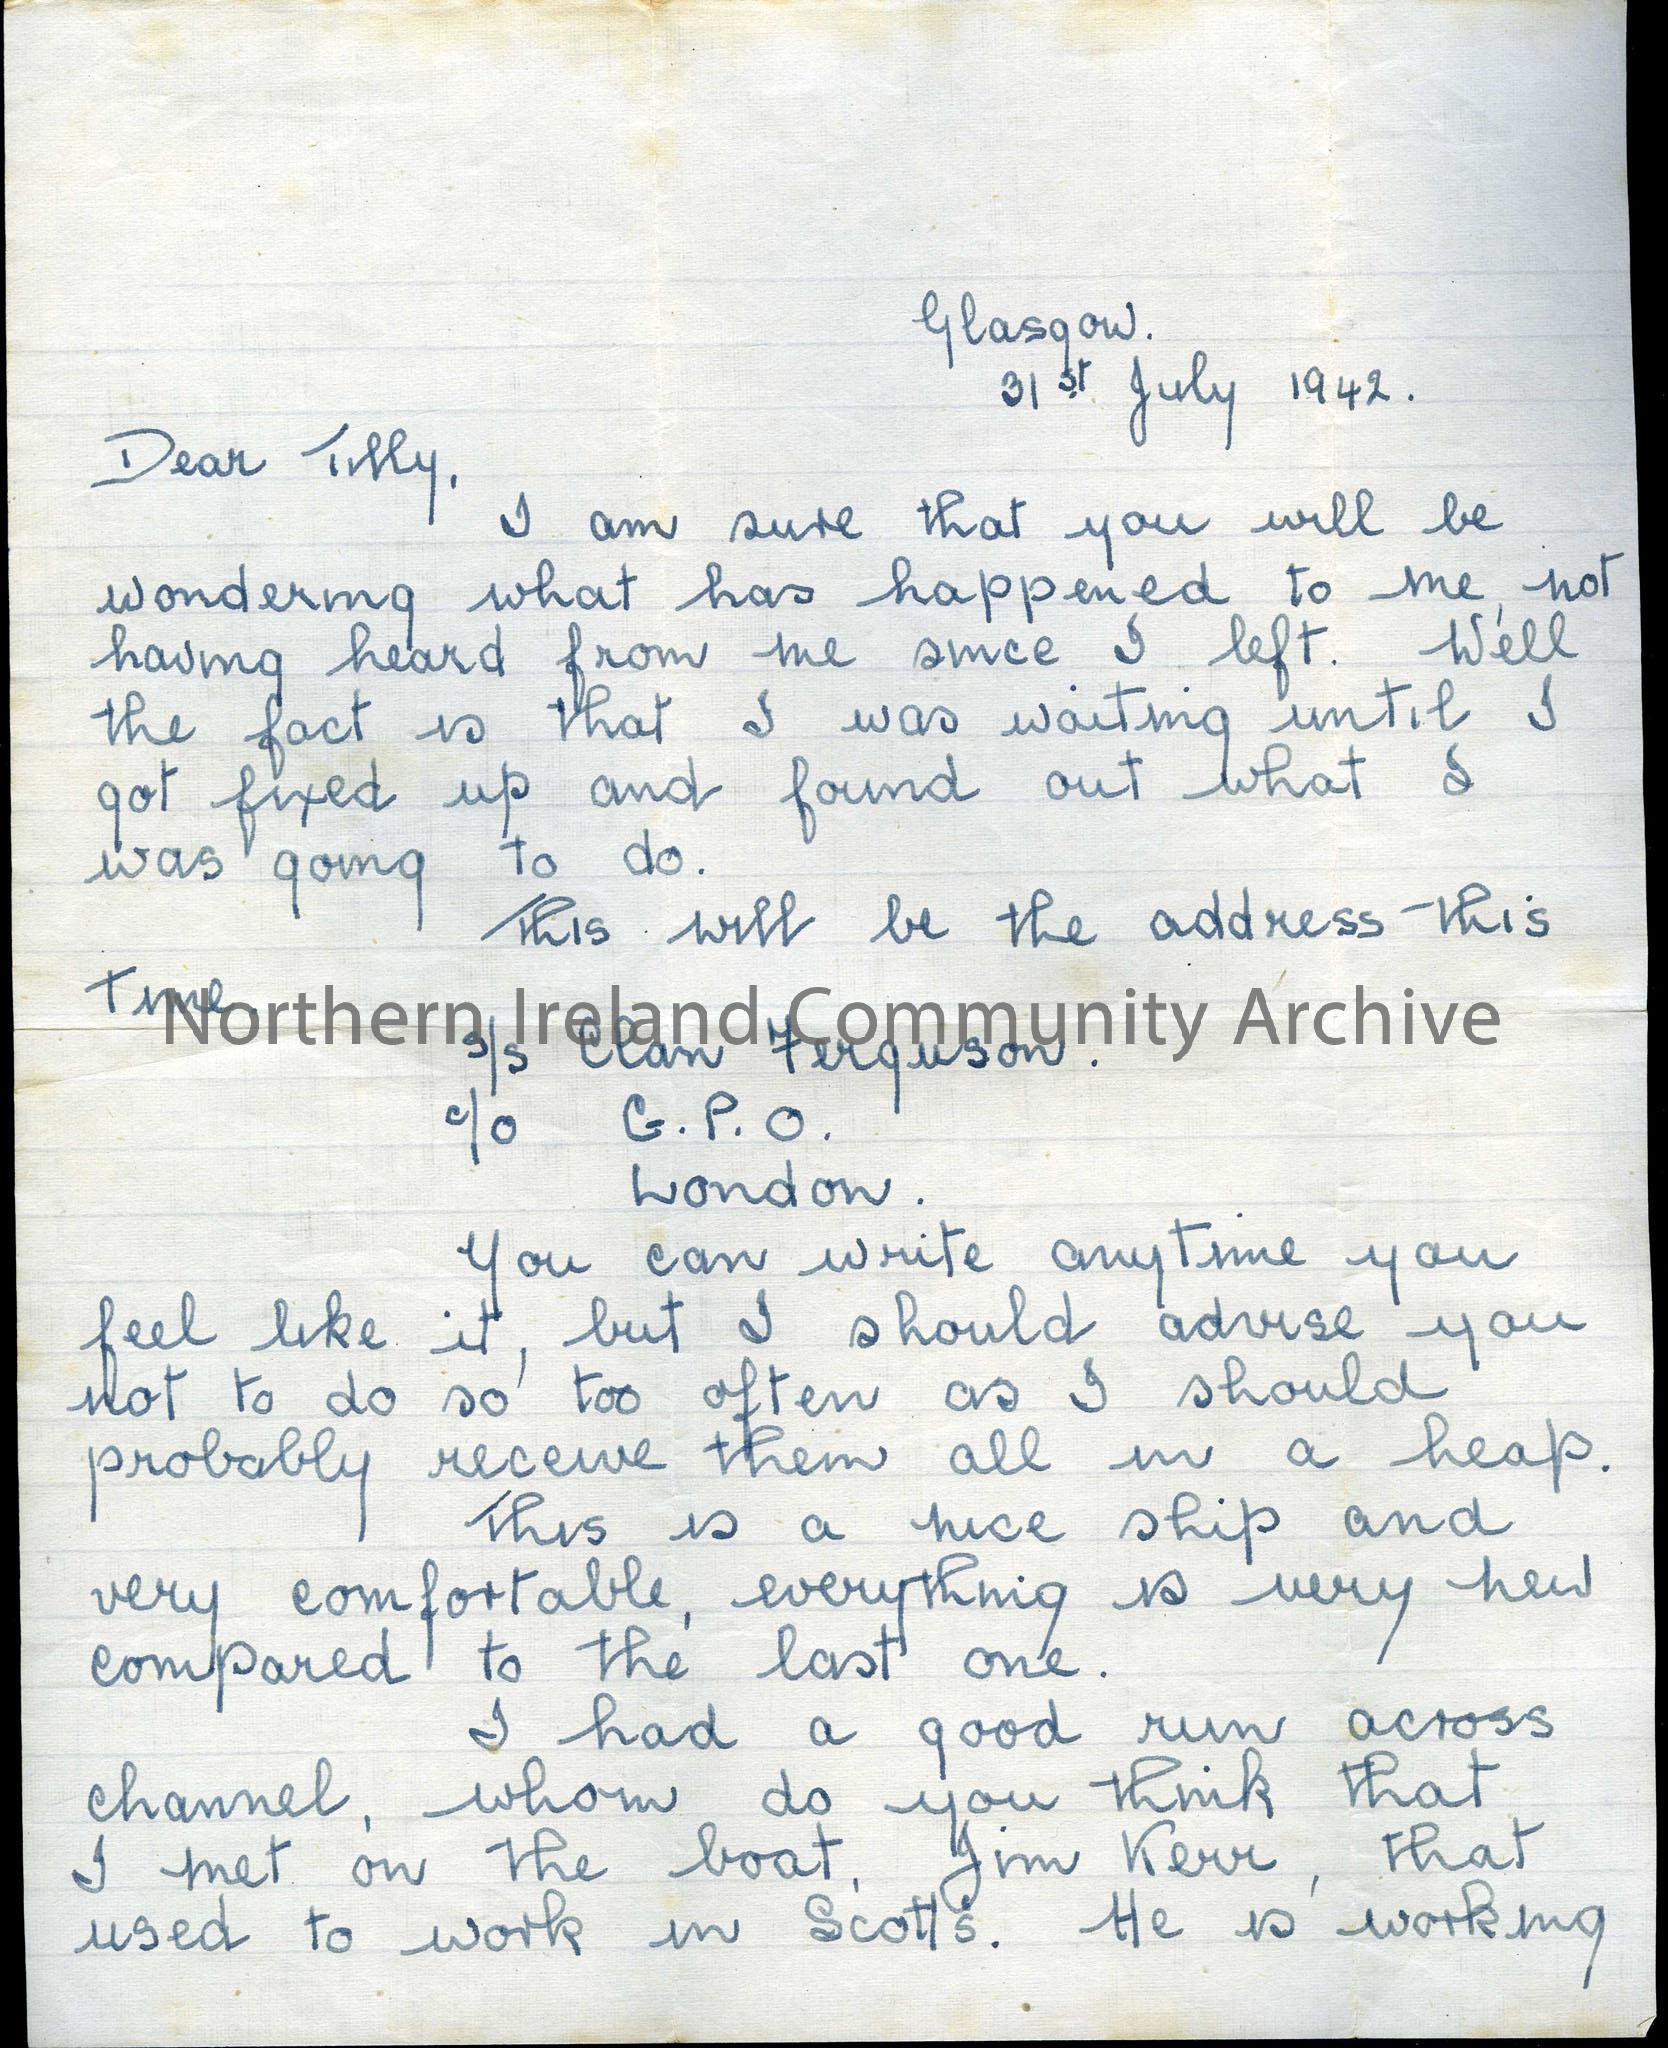 Glasgow.
31st July 1942.
Dear Tilly,
I am sure that you will be
wondering what has happened to me, not
having heard from me since I left. Well
the fact is that I was waiting until I
got fixed up and found out what I
was going to do.
This will be the address this
time.
Northern Ireland Community Archive
s/s Clan Ferguson.
c/o G.P.O.
London.
You can write anytime you
feel like it, but I should advise you
not to do so too often as I should
probably receive them all in a heap.
This is a nice ship and
very comfortable, everything is very new
compared to the last one.
I had a good run across
channel, whom do you think that
I met on the boat, Jim Kerr, that
used to work in Scott's. He is working